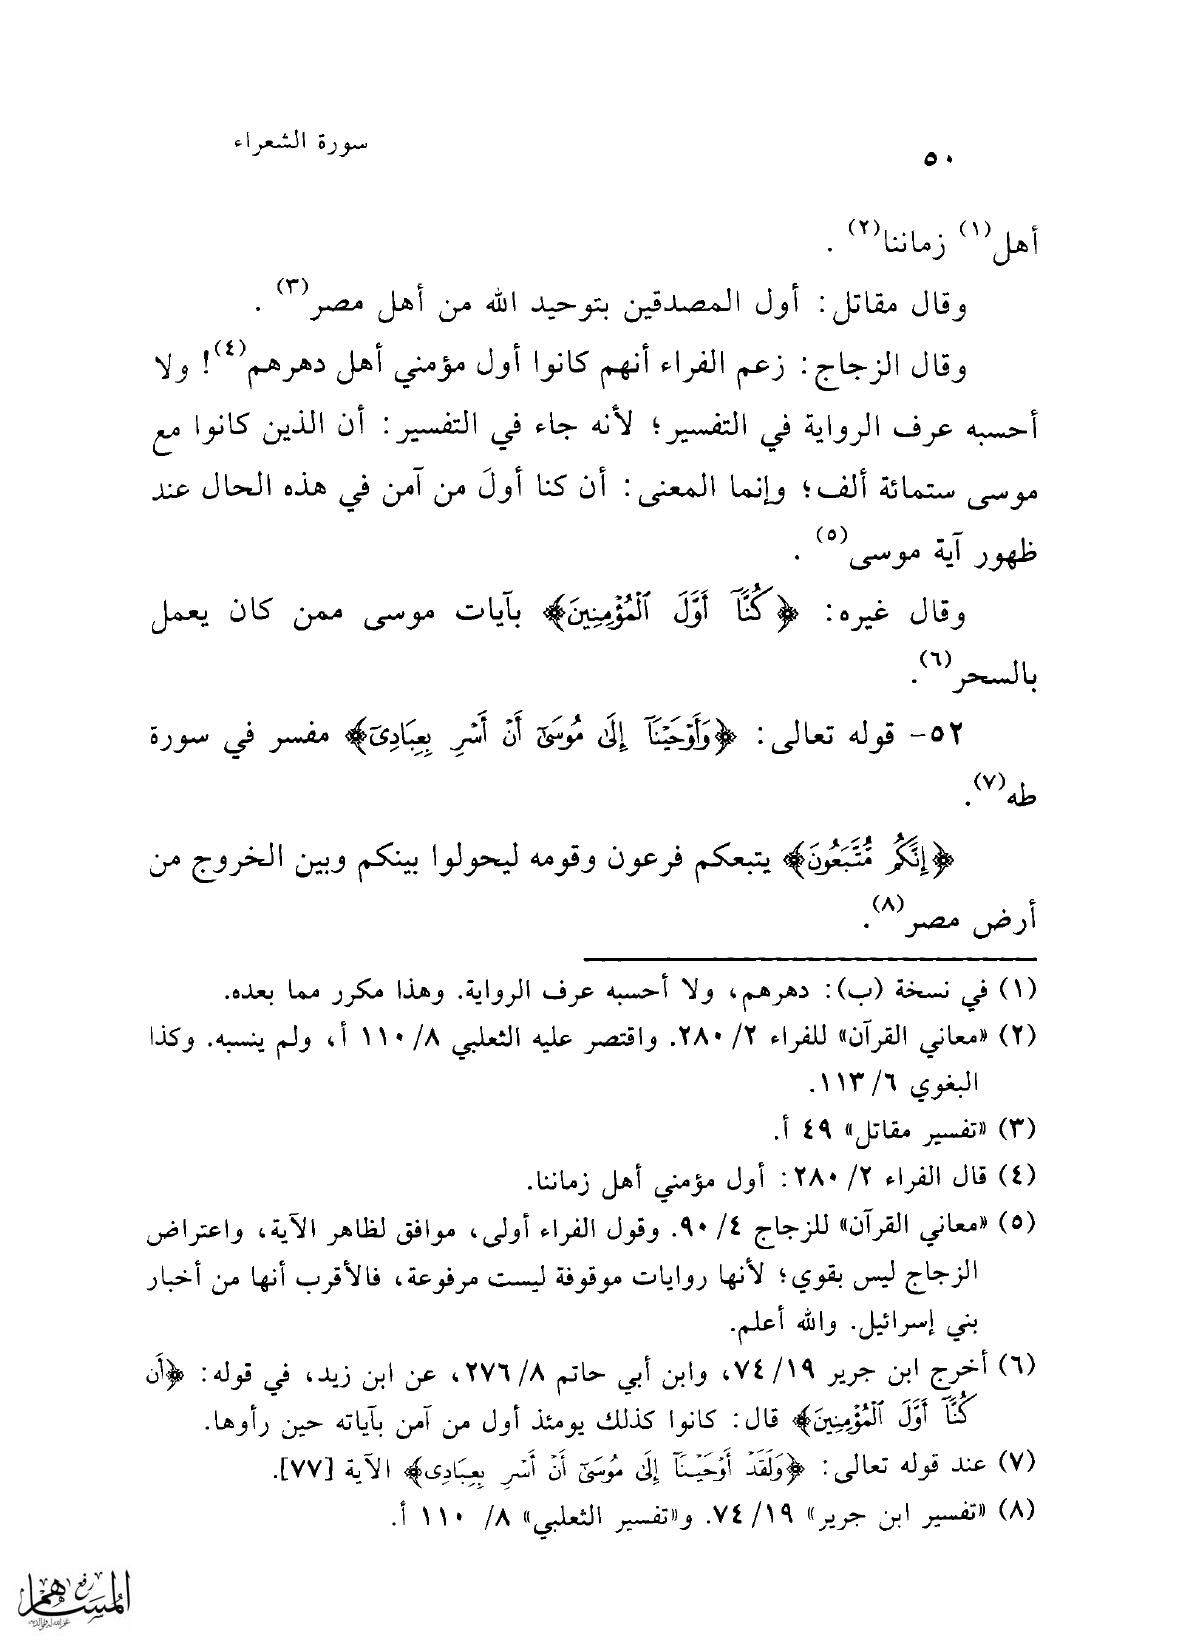 سورة الشعراء
٥٠
أهل(١) زماننا(٢) .
وقال مقاتل: أول المصدقين بتوحيد الله من أهل مصر(٣) .
وقال الزجاج: زعم الفراء أنهم كانوا أول مؤمني أهل دهرهم(٤)! ولا
أحسبه عرف الرواية في التفسير؛ لأنه جاء في التفسير: أن الذين كانوا مع
موسى ستمائة ألف؛ وإنما المعنى: أن كنا أولَ من آمن في هذه الحال عند
ظهور آية موسى(٥) .
وقال غيره: ﴿كُنَّآ أَوَّلَ ٱلْمُؤْمِنِينَ﴾ بآيات موسى ممن كان يعمل
بالسحر(٦).
٥٢- قوله تعالى: ﴿وَأَوْحَيْنَآ إِلَىٰ مُوسَىٰٓ أَنْ أَسْرِ بِعِبَادِىٓ﴾ مفسر في سورة
طه(٧).
﴿إِنَّكُم مُّتَّبَعُونَ﴾ يتبعكم فرعون وقومه ليحولوا بينكم وبين الخروج من
أرض مصر(٨).
(١) في نسخة (ب): دهرهم، ولا أحسبه عرف الرواية. وهذا مكرر مما بعده.
(٢) «معاني القرآن» للفراء ٢/ ٢٨٠. واقتصر عليه الثعلبي ٨/ ١١٠ أ، ولم ينسبه. وكذا
البغوي ٦/ ١١٣.
(٣) «تفسير مقاتل» ٤٩ أ.
(٤) قال الفراء ٢/ ٢٨٠: أول مؤمني أهل زماننا.
(٥) «معاني القرآن» للزجاج ٤/ ٩٠. وقول الفراء أولى، موافق لظاهر الآية، واعتراض
الزجاج ليس بقوي؛ لأنها روايات موقوفة ليست مرفوعة، فالأقرب أنها من أخبار
بني إسرائيل. والله أعلم.
(٦) أخرج ابن جرير ١٩/ ٧٤، وابن أبي حاتم ٨/ ٢٧٦، عن ابن زيد، في قوله: ﴿أَن
كُنَّآ أَوَّلَ ٱلْمُؤْمِنِينَ﴾ قال: كانوا كذلك يومئذ أول من آمن بآياته حين رأوها.
(٧) عند قوله تعالى: ﴿وَلَقَدْ أَوْحَيْنَآ إِلَىٰ مُوسَىٰٓ أَنْ أَسْرِ بِعِبَادِى﴾ الآية [٧٧].
(٨) «تفسير ابن جرير» ١٩/ ٧٤. و«تفسير الثعلبي» ٨/ ١١٠ أ.
رفع
المساهم